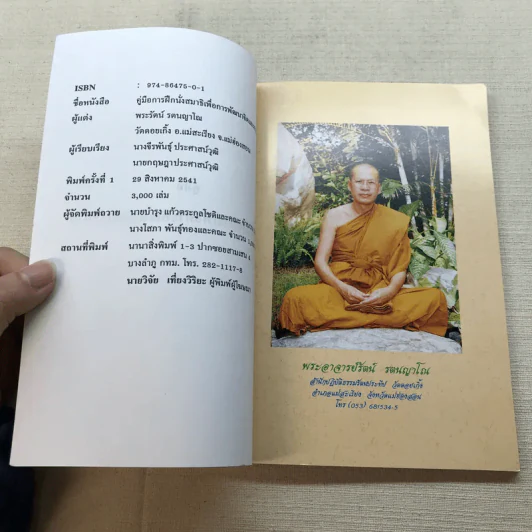 ISBN : 974-86475-0-1
ชื่อหนังสือ คู่มือการฝึกนั่งสมาธิเพื่อการพัฒนา
ผู้แต่ง พระรัตน์ รตนญาโณ
วัดดอยเกิ้ง อ.แม่สะเรียง จ.แม่ฮ่องสอน
ผู้เรียบเรียง นางจีรพันธุ์ ประศาสน์วุฒิ
นายกฤษฎาประศาสน์วุฒิ
พิมพ์ครั้งที่ 1 29 สิงหาคม 2541
จำนวน 3,000 เล่ม
ผู้จัดพิมพ์ถวาย นายบำรุง แก้วตระกูลโชติและคณะ
นางโสภา พันธุ์ทองและคณะ จำนวน
สถานที่พิมพ์ นานาสิ่งพิมพ์ 1-3 ปากซอยสามเสน
บางลำภู กทม. โทร. 282-1117-8
นายวิจัย เที่ยงวิริยะ ผู้พิมพ์ผู้โฆษณา
พระอาจารย์รัตน์ รตนญาโณ
สำนักปฏิบัติธรรมรัตนประทีป วัดดอยเกิ้ง
อำเภอแม่สะเรียง จังหวัดแม่ฮ่องสอน
โทร (053) 681534-5